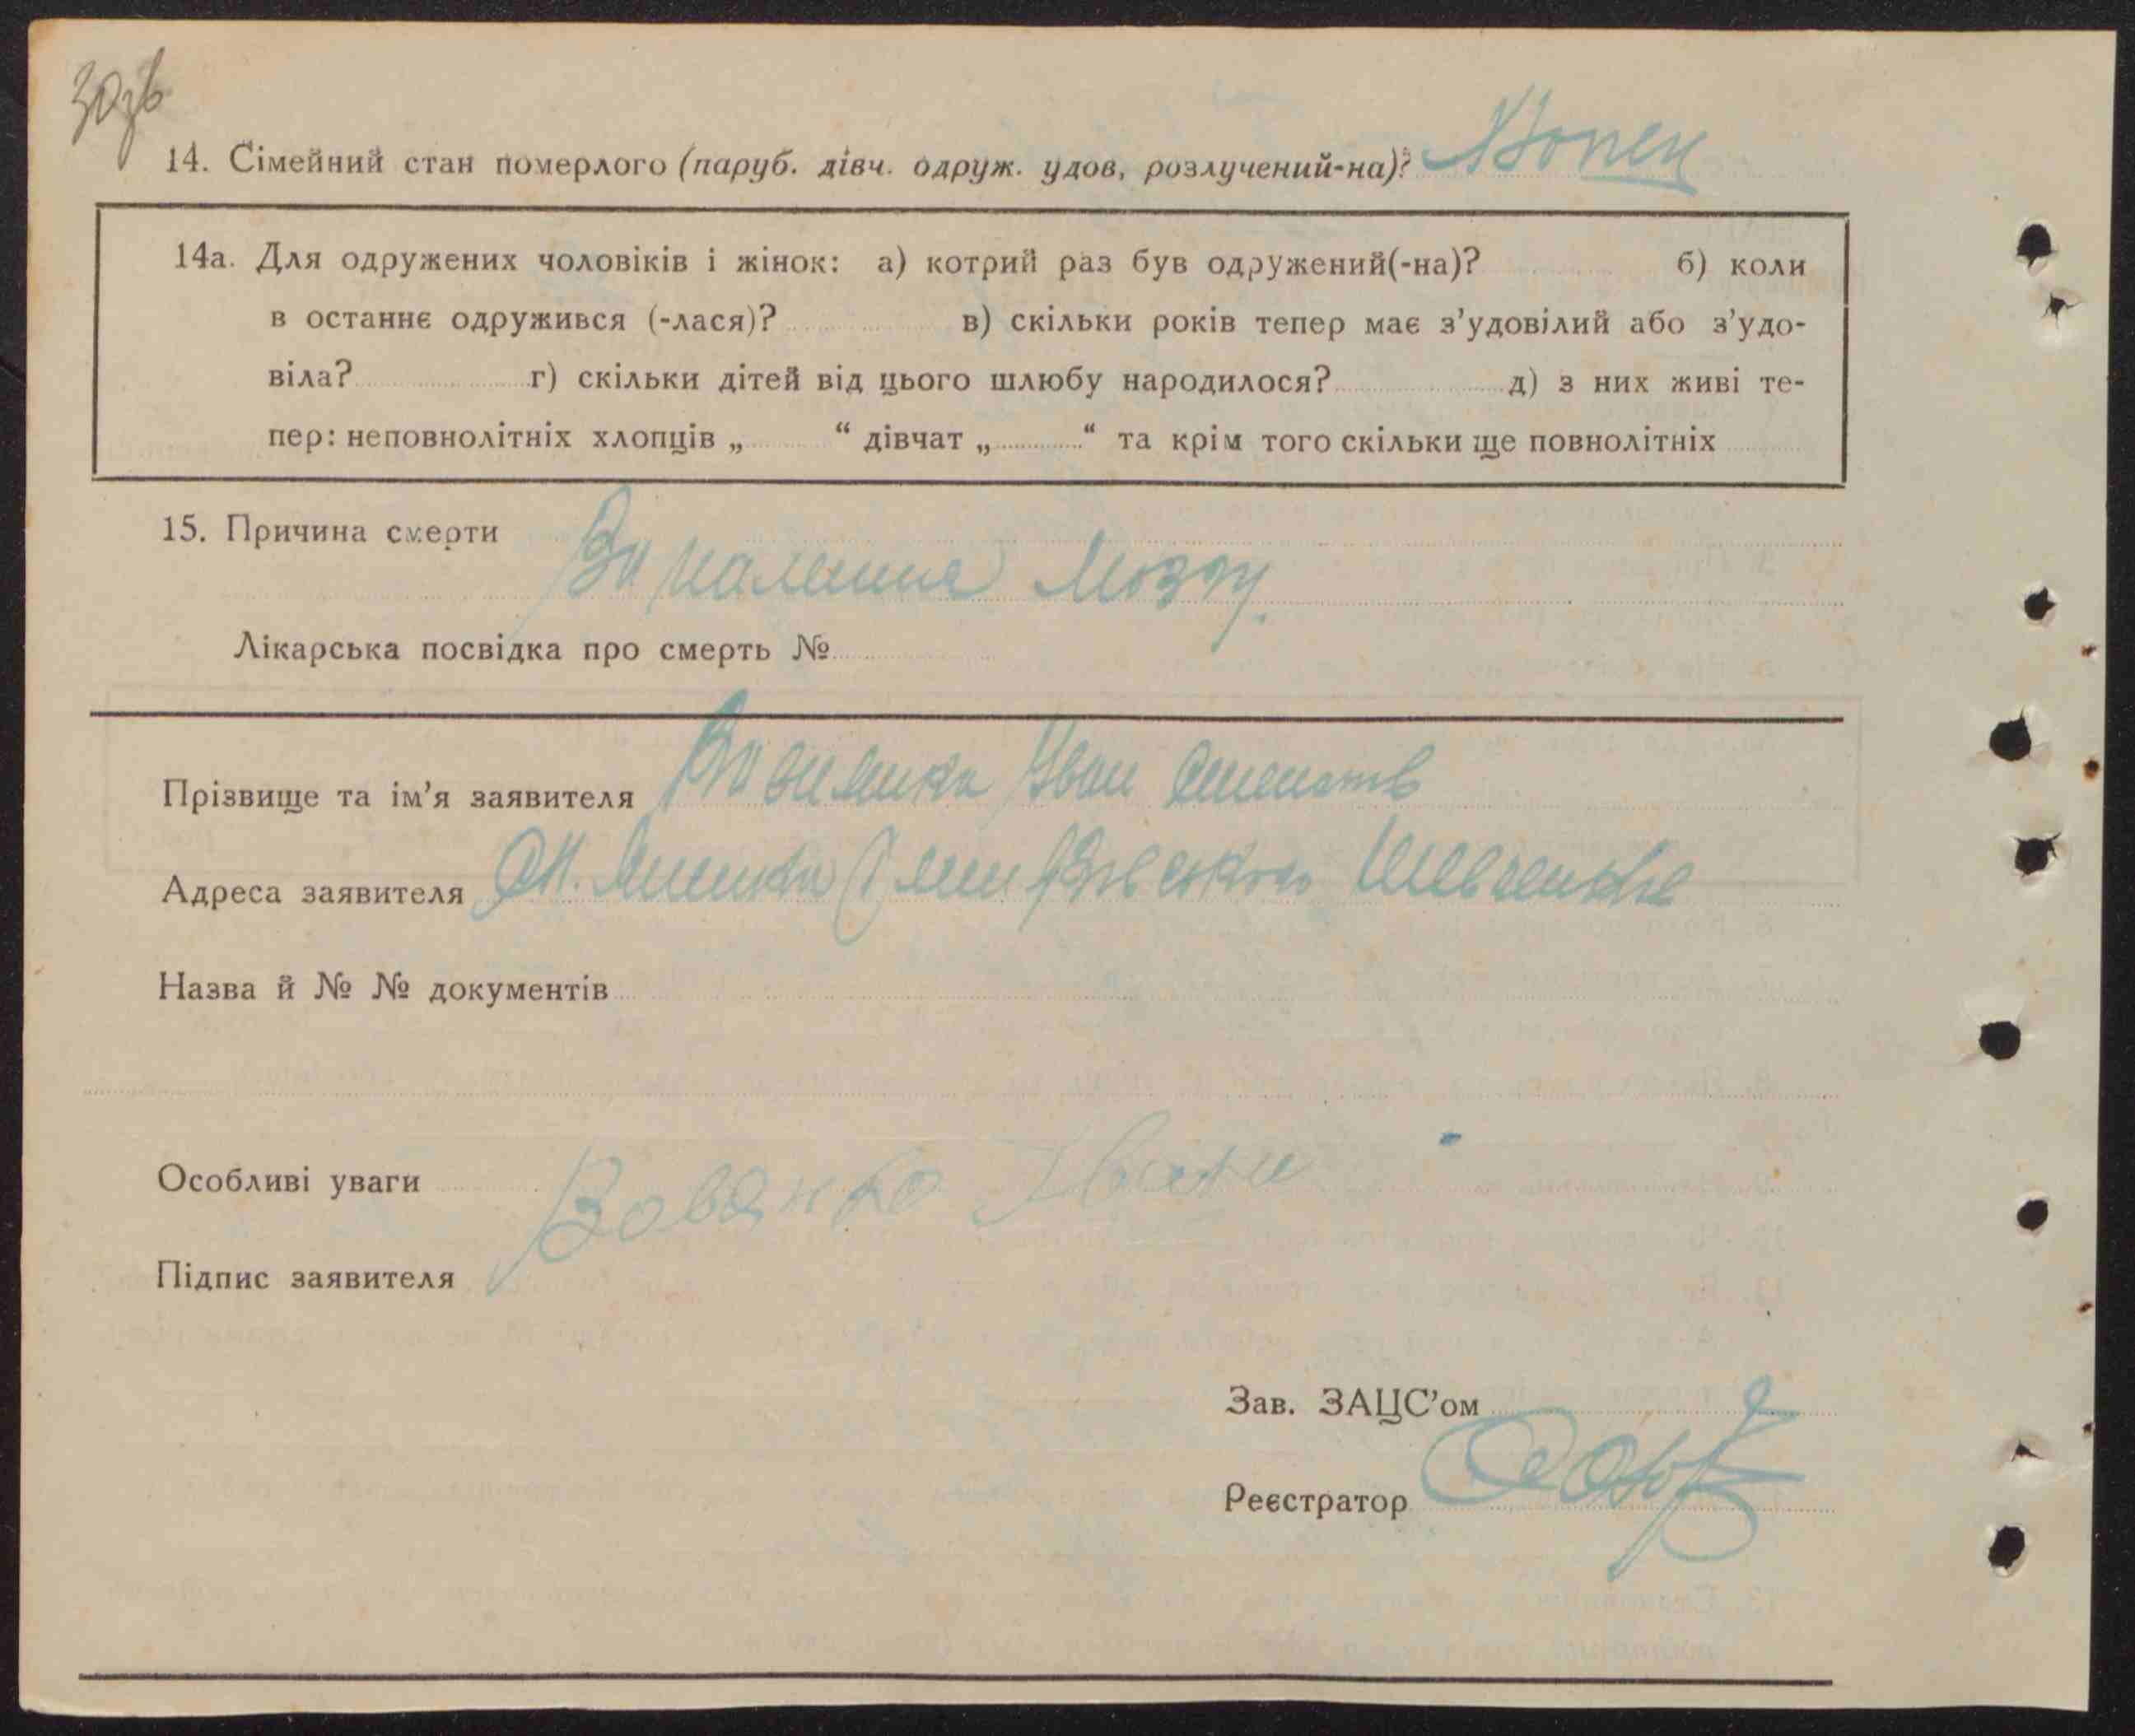 30зв
14. Сімейний стан померлого (паруб. дівч. одруж. удов, розлучений-на)? Хлопец
14а. Для одружених чоловіків і жінок: а) котрий раз був одружений(-на)? б) коли
в останнє одружився (-лася)? в) скільки років тепер має з'удовілий або з'удо-
віла? г) скільки дітей від цього шлюбу народилося? д) з них живі те-
пер: неповнолітніх хлопців „ “ дівчат „ “ та крім того скільки ще повнолітніх
15. Причина смерти
Запаление Мозгу
Лікарська посвідка про смерть №
Прізвище та ім'я заявителя Иван
Адреса заявителя Шевченка
Назва й № № документів
Особливі уваги
Підпис заявителя
Зав. ЗАЦС'ом
Реєстратор